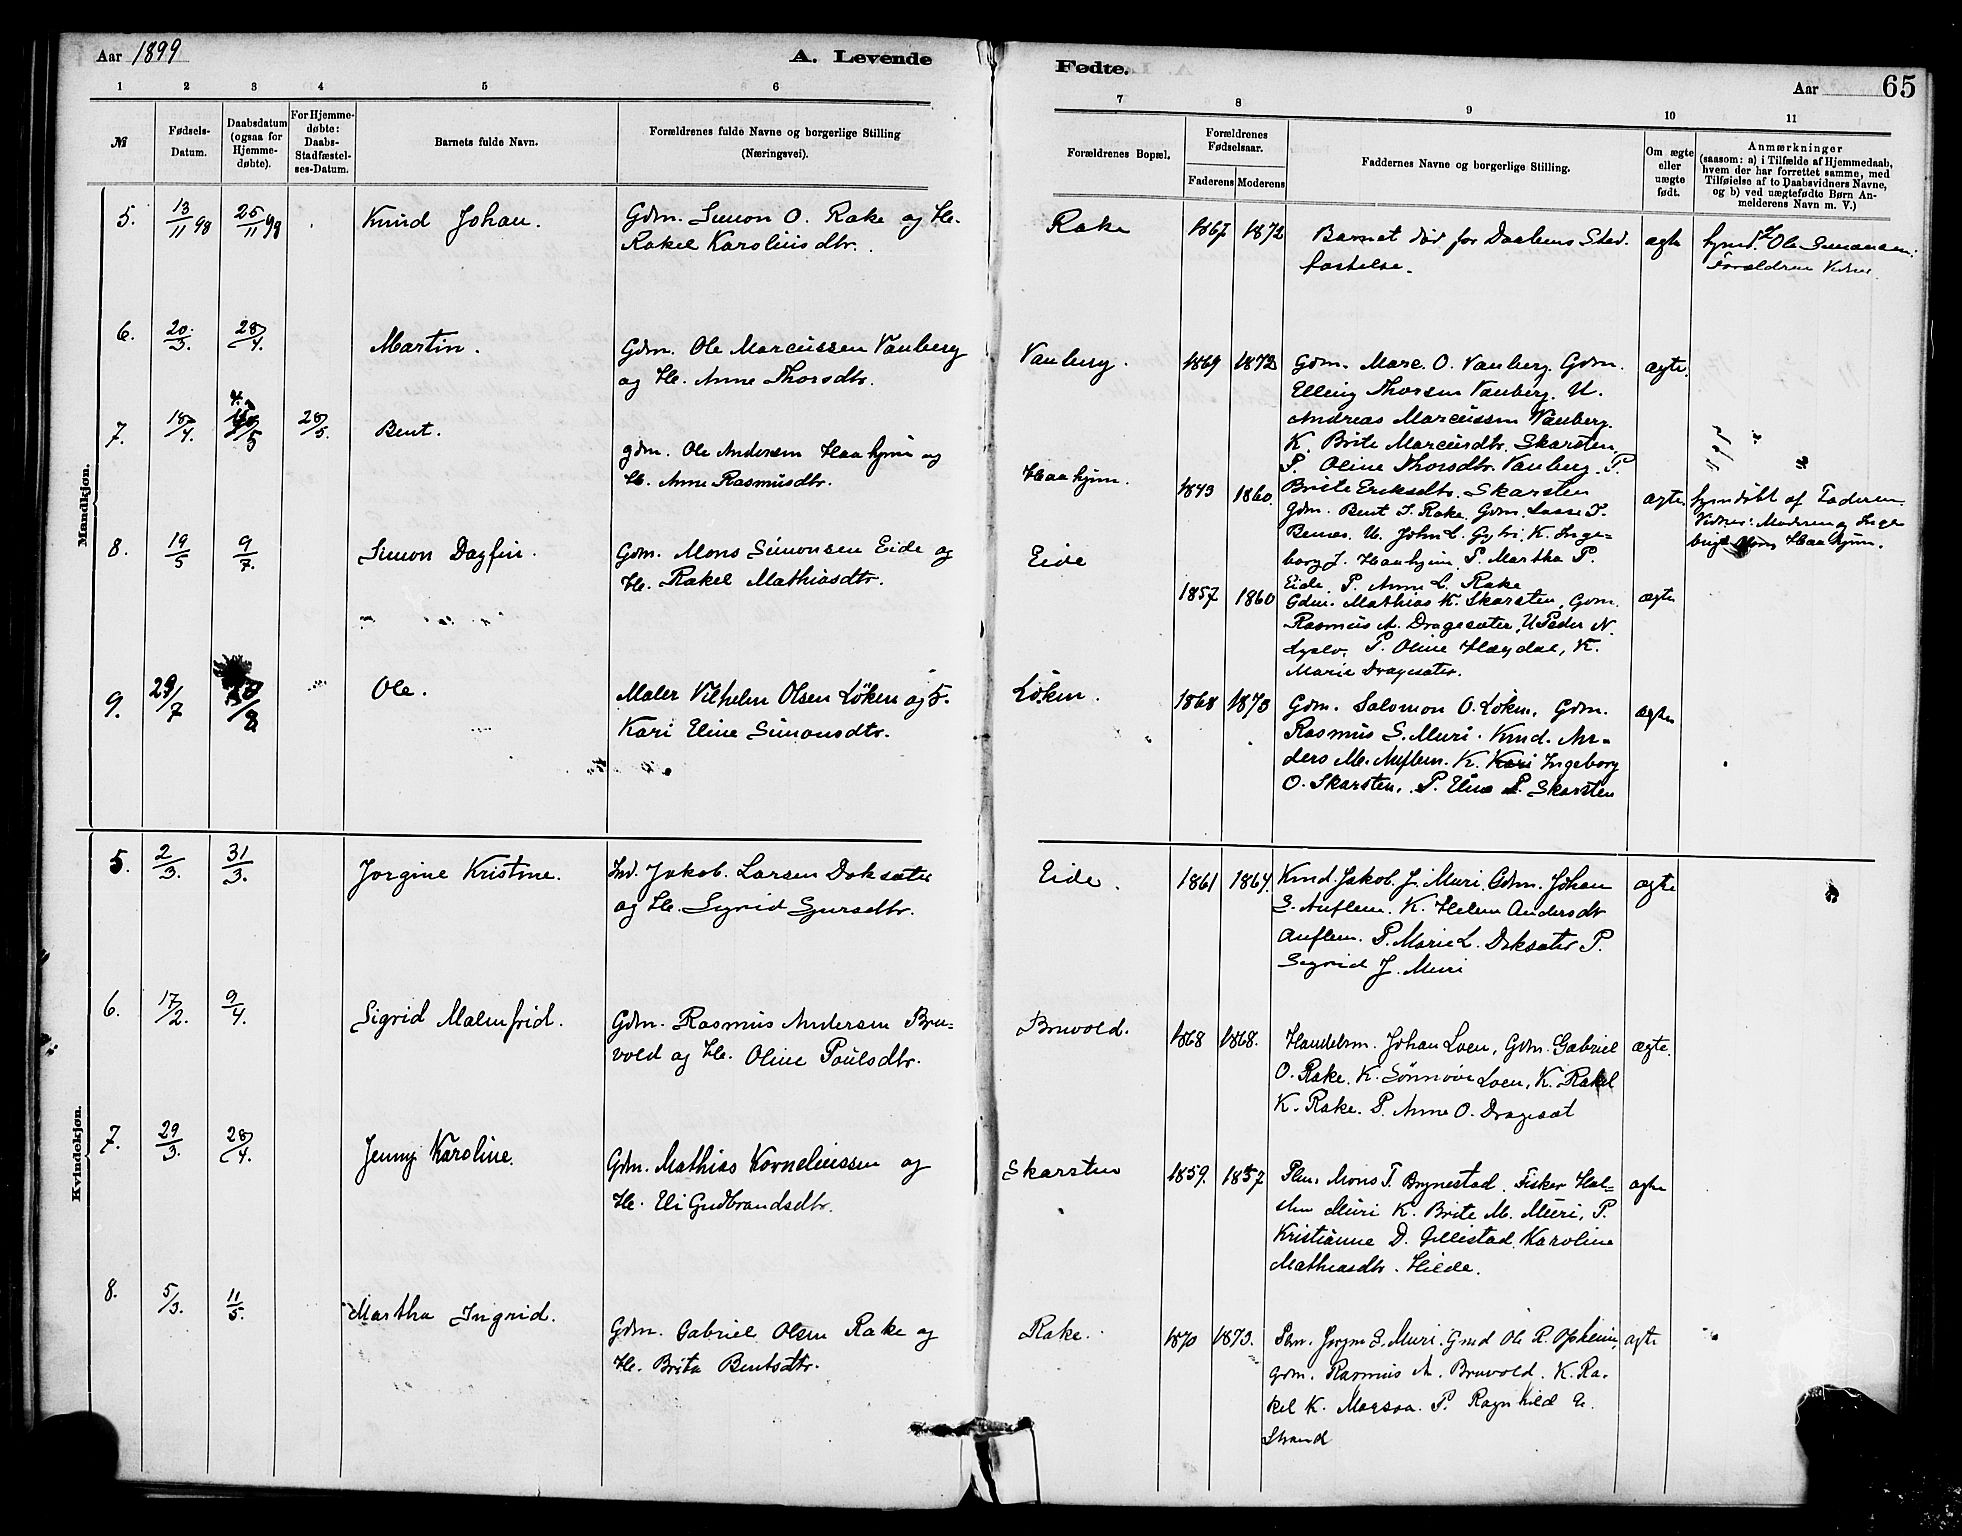 Aar 1899
A. Levende
1 2 3 4 5 6
№
Fødsels-Datum.
Daabsdatum (ogsaa for Hjemmedøbte).
For Hjemmedøbte: Daabs-Stadfæstelses-Datum.
Barnets fulde Navn.
Forældrenes fulde Navne og borgerlige Stilling
(Næringsvei).
Mandkjøn.
5. 13/11 98 25/11 98 Knud Johan. Gdm. Simon O. Rake og H.
Rakel Karolius dtr.
6. 20/3. 28/4. Martin. Gdm. Ole Marcussen Vanberg
og H. Anne Thorsdtr.
7. 18/4. 28/5. Bent. gdm. Ole Andersen Haahjem og
H. Anne Rasmusdtr.
8. 19/5 9/7. Simon Dagfin. Gdm. Mons Simonsen Eide og
H. Rakel Mathiasdtr.
9. 29/7 Ole. Maler Vilhelm Olsen Löken og H.
Kari Eline Simonsdtr.
Kvindekjøn.
5. 2/3. 31/3. Jorgine Kristine. Ind. Jakob Larsen Doksæter
og H. Sigrid Sjursdtr.
6. 17/2. 9/4. Sigrid Malmfrid. Gdm. Rasmus Andersen Bru-
vold og H. Oline Poulsdtr.
7. 29/3. 28/4. Jenny Karoline. Gdm. Mathias Korneliussen og
H. Eli Gudbrandsdtr.
8. 5/3. 11/5. Martha Ingrid. Gdm. Gabriel Olsen Rake og
H. Brita Bentsdtr.
Fødte.
Aar 65
7 8 9 10 11
Forældrenes Bopæl.
Forældrenes Fødselsaar.
Faderens Moderens
Faddernes Navne og borgerlige Stilling.
Om ægte eller uægte født.
Anmærkninger
(saasom: a) i Tilfælde af Hjemmedaab,
hvem der har forrettet samme, med
Tilføielse af to Daabsvidners Navne,
og b) ved uægtefødte Børn An-
melderens Navn m. V.)
Rake 1867 1872 Barnet död før Daabens Stad- ægte hjmd. af Ole Simonsen.
fæstelse. Forældrene Vidner.
Vanberg. 1869 1872 Gdm. Marc. O. Vanberg. Gdm. ægte.
Elling Thorsen Vanberg. U.
Andreas Marcussen Vanberg.
K. Brite Marcusdtr. Skarsten
P. Oline Thorsdtr. Vanberg. P.
Brite Eriksdtr. Skarsten
Haahjem. 1843 1860. Gdm. Bent J. Rake. Gdm. Lasse J. ægte hjemdöbt af Faderen
Benes. U. John L. Gytri. K. Inge- Vidner: Moderen og Inge
borg J. Haahjem. P. Martha P. Haahjem.
Eide. P. Anne L. Rake
Eide 1857 1860 Gdm. Mathias K. Skarsten, Gdm. ægte
Rasmus A. Dragesæter, U Peder N.
P. Oline Hægdal, K.
Marie Dragesæter.
Löken. 1868 1873 Gdm. Salomon O. Löken. Gdm. ægte
Rasmus S. Muri. Knud. An-
ders M. Auflem. K. Ingeborg
O. Skarsten. P. Eline P. Skarsten
Eide. 1861 1864. Knud Jakob J. Muri. Gdm. Johan ægte
S. Auflem. K. Helene Andersdtr
Auflem. P. Marie L. Doksæter P.
Sigrid J. Muri
Bruvold. 1868 1868. Handelsm. Johan Loen, Gdm. Gabriel ægte.
O. Rake. K. Sönnöve Loen, K. Rakel
K. Rake. P. Anne O. Dragesæt
Skarsten 1859. 1857 Plm. Mons T. Brynestad. Fisker Hal- ægte
Muri K. Brite M. Muri, P.
Kristianne D. Gillestad. Karoline
Mathiasdtr. Hilde.
Rake. 1870 1873. Jorgen E. Muri. Gmd Ole R. Opheim, ægte
gdm. Rasmus A. Bruvold. K. Ra-
kel K. P. Ragnhild E.
Strand